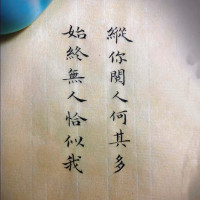 縱你閱人何其多
始終無人恰似我